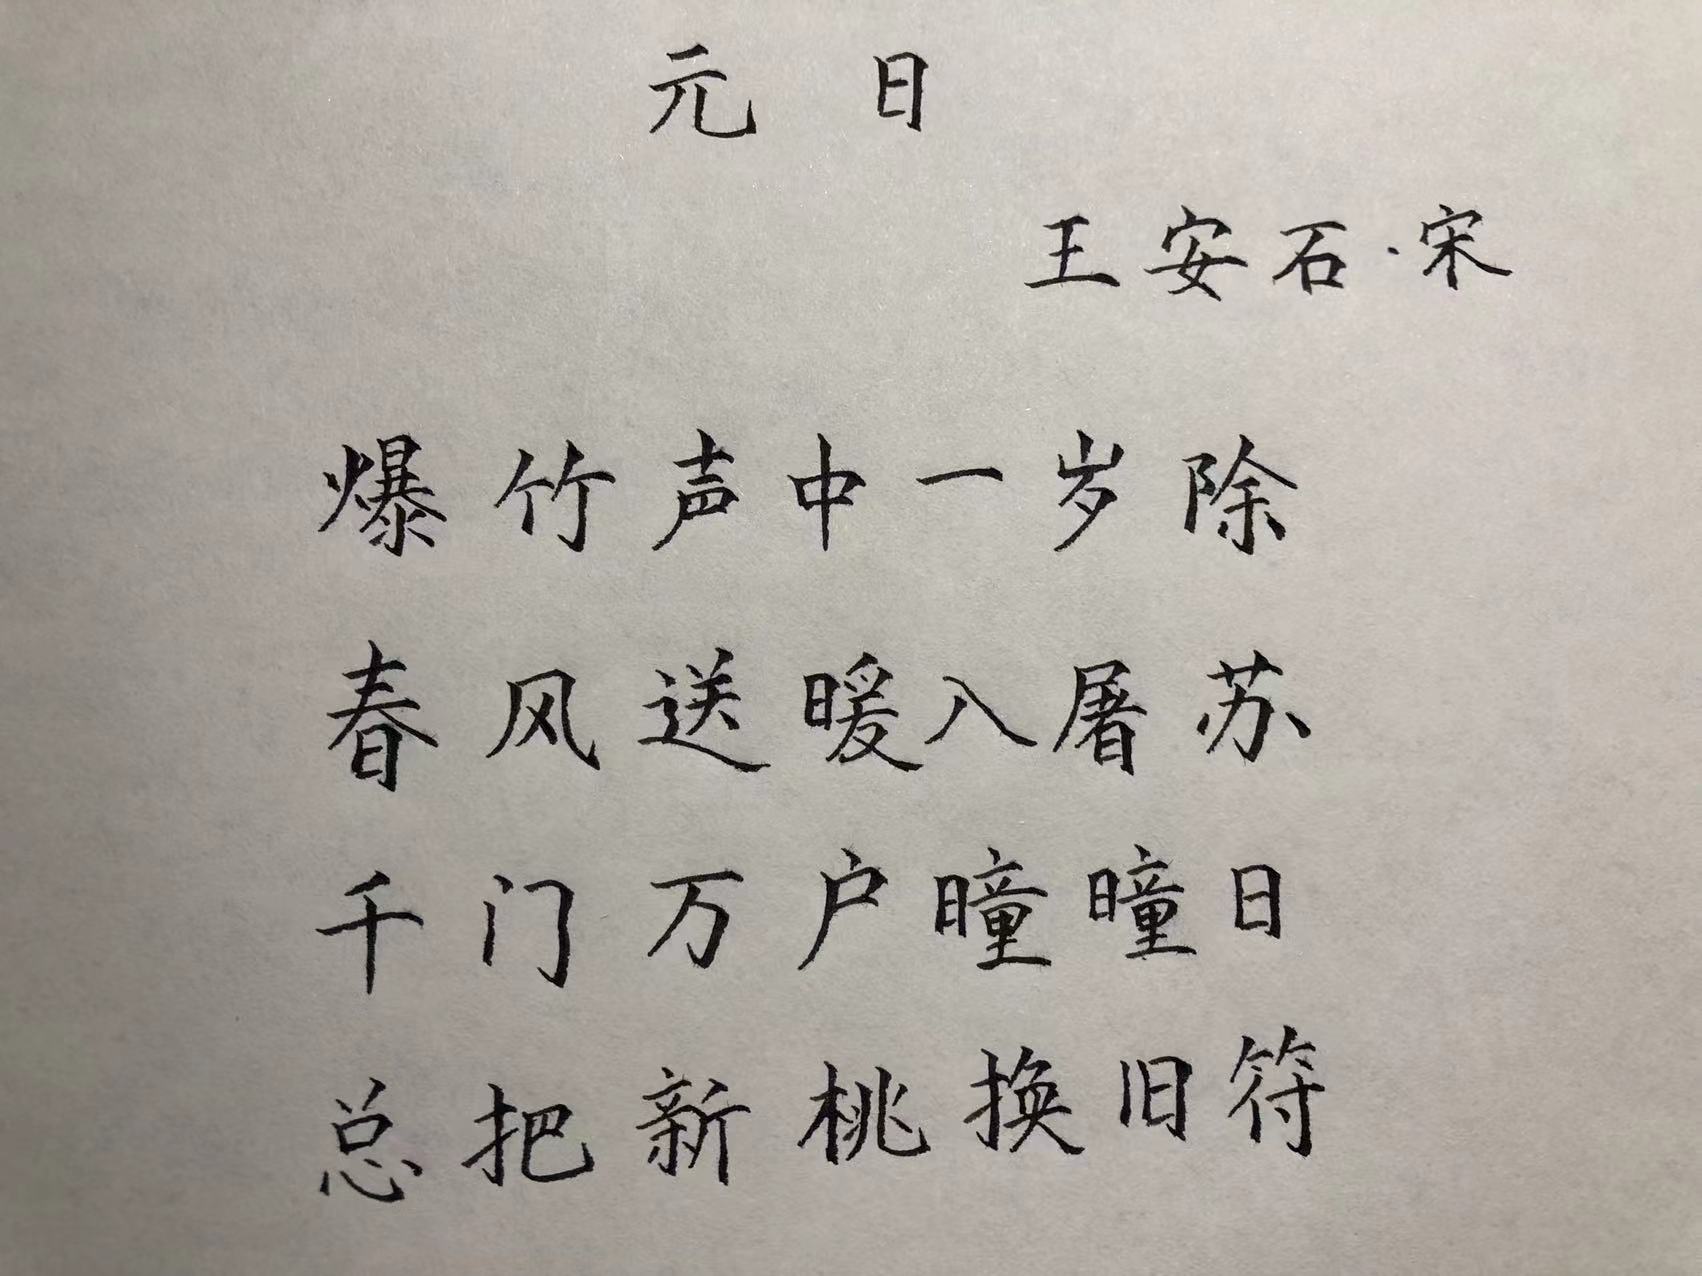 元日
王安石·宋
爆竹声中一岁除
春风送暖入屠苏
千门万户曈曈日
总把新桃换旧符